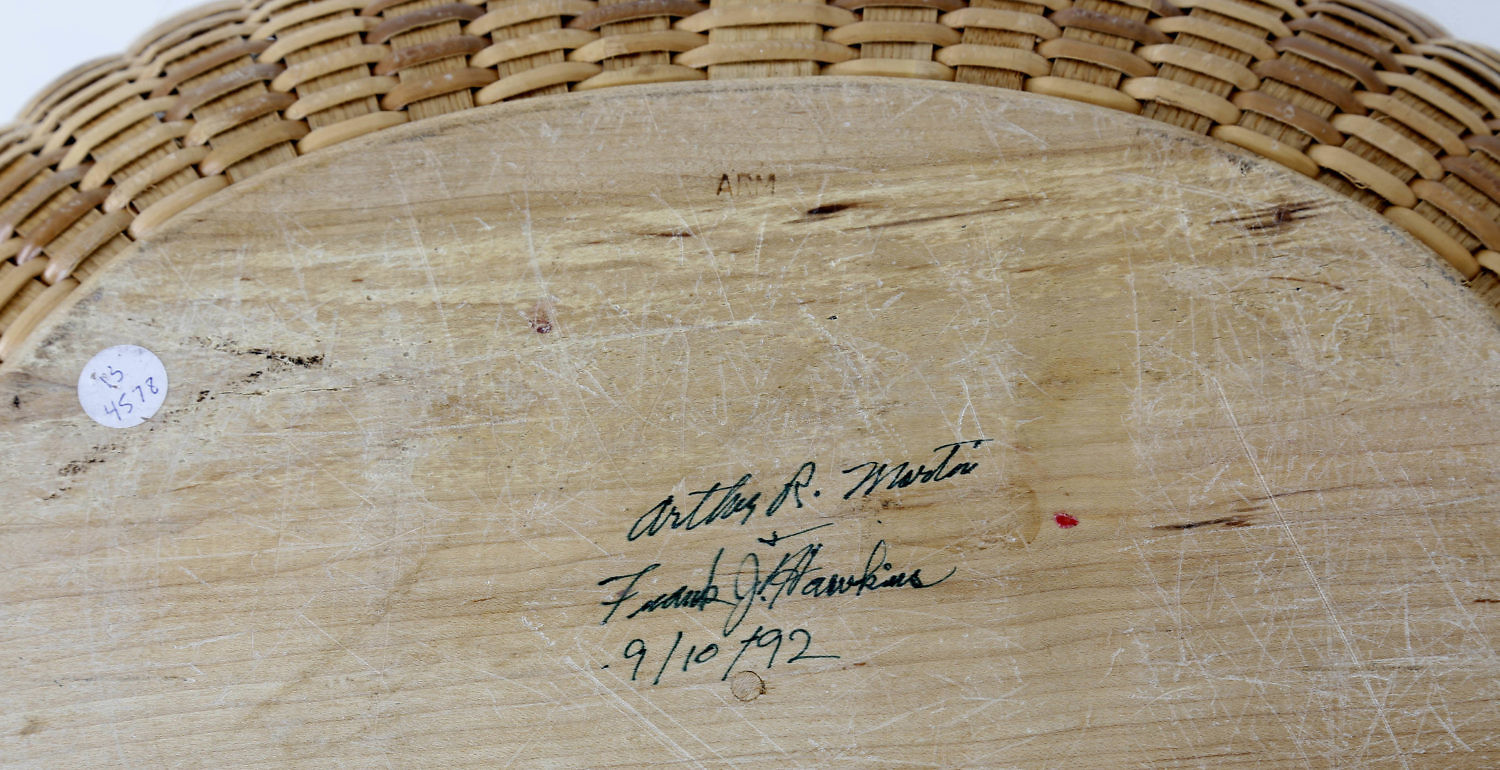 ARM
P3
4578
Arthur R. Martin
&
Frank J. Hawkins
9/10/92